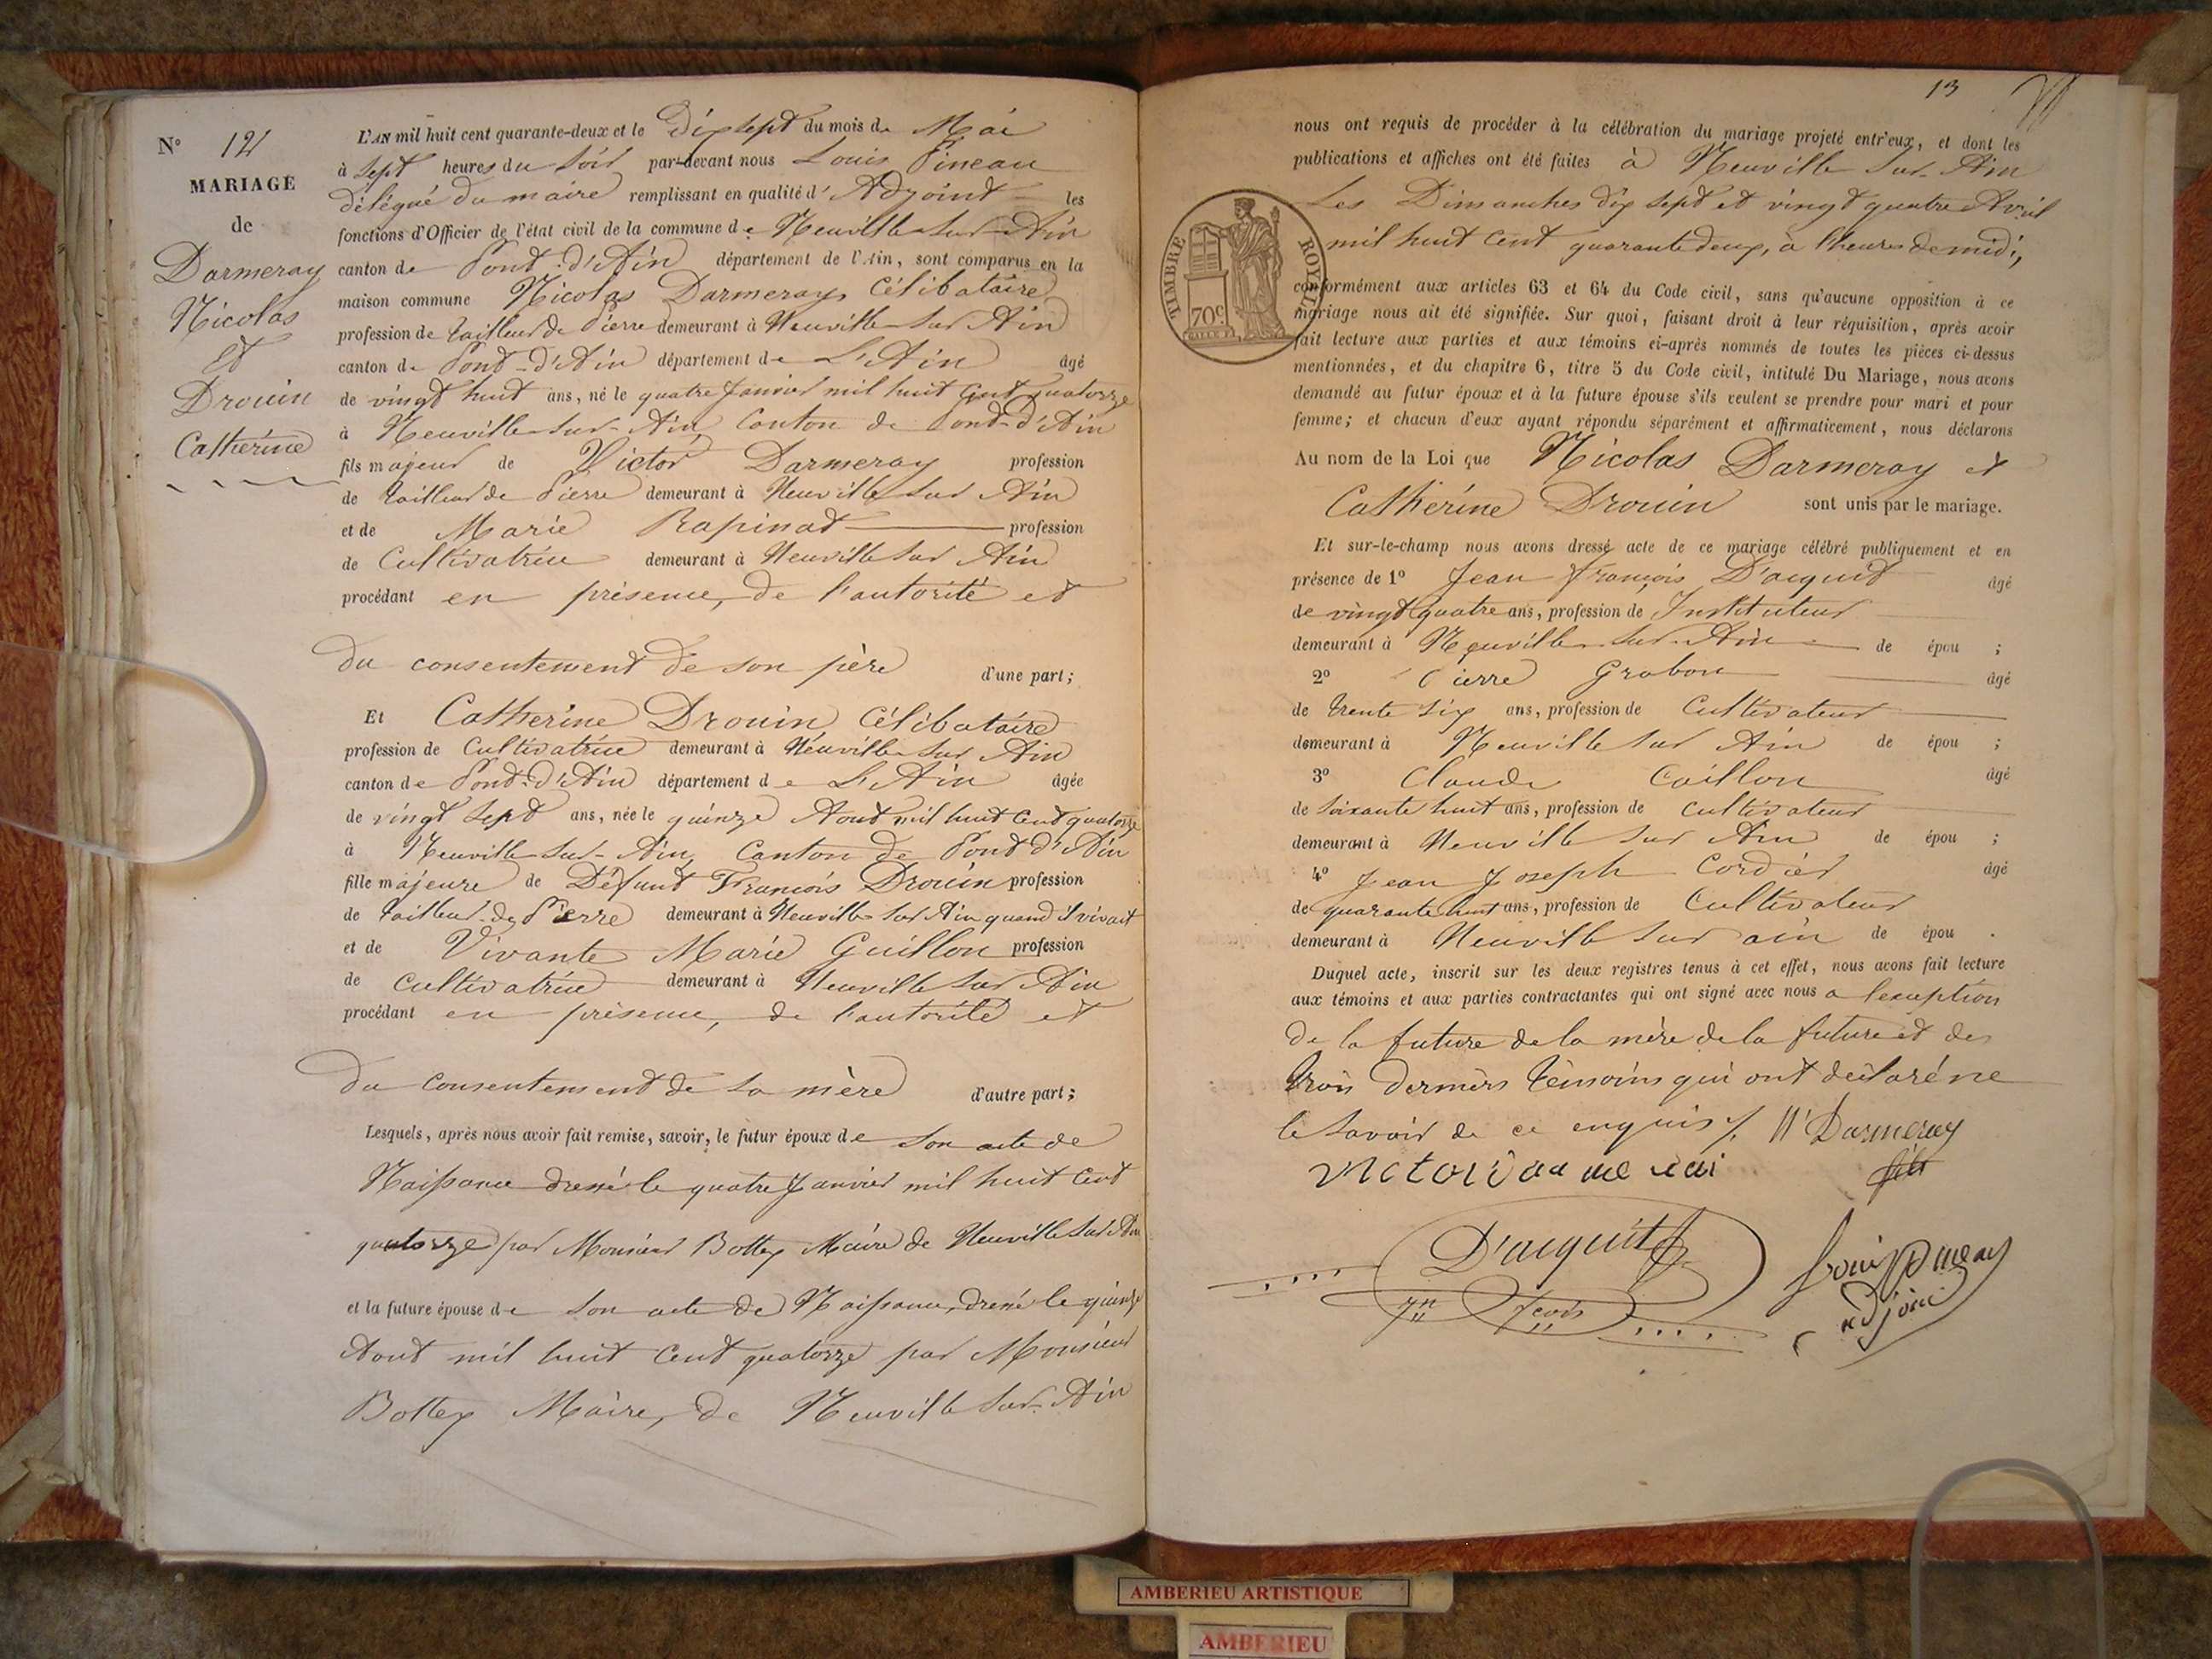 N° 12
MARIAGE
de
Darmeray
Nicolas
et
Drouin
Catherine
L'AN mil huit cent quarante-deux et le Dix sept du mois de Mai
à sept heures du soir par-devant nous Louis Pineau
délégué du maire remplissant en qualité d'Adjoint les
fonctions d'Officier de l'état civil de la commune de Neuville sur Ain
canton de Pont-d'Ain département de l'Ain, sont comparus en la
maison commune Nicolas Darmeray, Célibataire
profession de tailleur de Pierre demeurant à Neuville sur Ain
canton de Pont-d'Ain département de L'Ain âgé
de vingt huit ans, né le quatre Janvier mil huit cent quatorze
à Neuville-sur-Ain Canton de Pont-d'Ain
fils majeur de Victor Darmeray profession
de tailleur de Pierre demeurant à Neuville sur Ain
et de Marie Rapinat profession
de Cultivatrice demeurant à Neuville sur Ain
procédant en présence, de l'autorité et
du consentement de son père d'une part;
Et Catherine Drouin Célibataire
profession de Cultivatrice demeurant à Neuville sur Ain
canton de Pont-d'Ain département de L'Ain âgée
de vingt sept ans, née le quinze Aout mil huit cent quatorze
à Neuville-sur-Ain, Canton de Pont d'Ain
fille majeure de Défunt François Drouin profession
de tailleur de Pierre demeurant à Neuville sur Ain quand il vivait
et de Vivante Marie Guillon profession
de cultivatrice demeurant à Neuville sur Ain
procédant en présence, de l'autorité et
du consentement de sa mère d'autre part;
Lesquels, après nous avoir fait remise, savoir, le futur époux de son acte de
Naissance dressé le quatre Janvier mil huit cent
quatorze par Monsieur Bottex Maire de Neuville sur Ain
et la future épouse de son acte de Naissance, dressé le quinze
Aout mil huit cent quatorze par Monsieur
Bottex Maire, de Neuville sur-Ain
13
nous ont requis de procéder à la célébration du mariage projeté entr'eux, et dont les
publications et affiches ont été faites à Neuville sur-Ain
Les Dimanches dix sept et vingt quatre Avril
mil huit cent quarante deux, à l'heure de midi,
TIMBRE ROYAL
70c
conformément aux articles 63 et 64 du Code civil, sans qu'aucune opposition à ce
mariage nous ait été signifiée. Sur quoi, faisant droit à leur réquisition, après avoir
fait lecture aux parties et aux témoins ci-après nommés de toutes les pièces ci-dessus
mentionnées, et du chapitre 6, titre 5 du Code civil, intitulé Du Mariage, nous avons
demandé au futur époux et à la future épouse s'ils veulent se prendre pour mari et pour
femme; et chacun d'eux ayant répondu séparément et affirmativement, nous déclarons
Au nom de la Loi que Nicolas Darmeray et
Catherine Drouin sont unis par le mariage.
Et sur-le-champ nous avons dressé acte de ce mariage célébré publiquement et en
présence de 1° Jean François D'acquit âgé
de vingt quatre ans, profession de Instituteur
demeurant à Neuville sur-Ain de épou ;
2° Pierre Grabon âgé
de trente six ans, profession de Cultivateur
demeurant à Neuville sur Ain de épou ;
3° Claude Caillon âgé
de soixante huit ans, profession de cultivateur
demeurant à Neuville sur Ain de épou ;
4° Jean Joseph Cordier âgé
de quarante huit ans, profession de Cultivateur
demeurant à Neuville sur ain de épou .
Duquel acte, inscrit sur les deux registres tenus à cet effet, nous avons fait lecture
aux témoins et aux parties contractantes qui ont signé avec nous a l'exception
de la future de la mère de la future et des
trois derniers témoins qui ont déclaré ne
le savoir de ce enquis /. N Darmeray
fils
D'acquit
Jn fcois
Louis Pineau
adjoin
AMBERIEU ARTISTIQUE
AMBERIEU